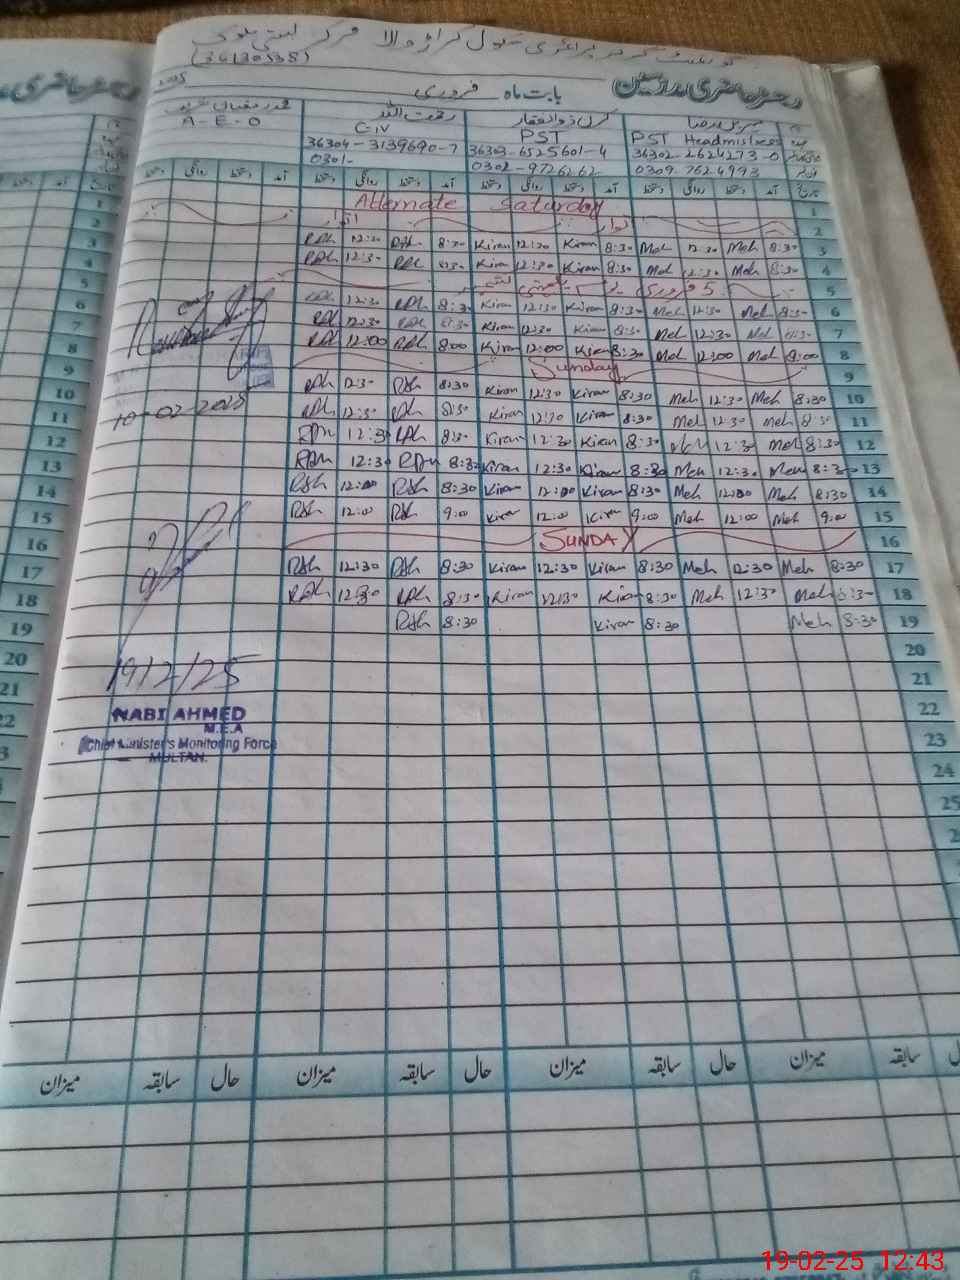 گورنمنٹ گرلز پرائمری سکول
(36130538)
رجسٹر حاضری مدرسین
بابت ماہ فروری 2025
A-E-O
رحمت اللہ
کرن ذوالفقار
C-IV
PST
PST Headmistress
36304-3139690-7
36303-6525601-4
36302-2624273-0
0301-
0302-9726262
0309-7624993
دستخط روانگی دستخط آمد دستخط روانگی دستخط آمد دستخط روانگی دستخط آمد دستخط روانگی دستخط آمد تاریخ
Alternate Saturday 1
اتوار اتوار 2
12:30 8:30 Kiran 12:30 Kiran 8:30 Meh 12:30 Meh 8:30 3
12:30 8:30 Kiran 12:30 Kiran 8:30 Meh 12:30 Meh 8:30 4
5 فروری یوم یکجہتی کشمیر 5
12:30 8:30 Kiran 12:30 Kiran 8:30 Meh 12:30 Meh 8:30 6
12:30 8:30 Kiran 12:30 Kiran 8:30 Meh 12:30 Meh 8:30 7
12:00 8:00 Kiran 12:00 Kiran 8:30 Meh 12:00 Meh 9:00 8
Sunday 9
12:30 Rsh 8:30 Kiran 12:30 Kiran 8:30 Meh 12:30 Meh 8:30 10
10-02-2025
12:30 8:30 Kiran 12:30 Kiran 8:30 Meh 12:30 Meh 8:30 11
12:30 8:30 Kiran 12:30 Kiran 8:30 Meh 12:30 Meh 8:30 12
12:30 8:30 Kiran 12:30 Kiran 8:30 Meh 12:30 Meh 8:30 13
Rsh 12:00 Rsh 8:30 Kiran 12:00 Kiran 8:30 Meh 12:00 Meh 8:30 14
Rsh 12:00 Rsh 9:00 Kiran 12:00 Kiran 9:00 Meh 12:00 Meh 9:00 15
SUNDAY 16
Rsh 12:30 Rsh 8:30 Kiran 12:30 Kiran 8:30 Meh 12:30 Meh 8:30 17
Rsh 12:30 Rsh 8:30 Kiran 12:30 Kiran 8:30 Meh 12:30 Meh 8:30 18
Rsh 8:30 Kiran 8:30 Meh 8:30 19
20
19/2/25
21
NABI AHMED
M.E.A
22
Chief Minister's Monitoring Force
MULTAN.
23
24
25
میزان سابقہ حال میزان سابقہ حال میزان سابقہ حال میزان سابقہ
19-02-25 12:43